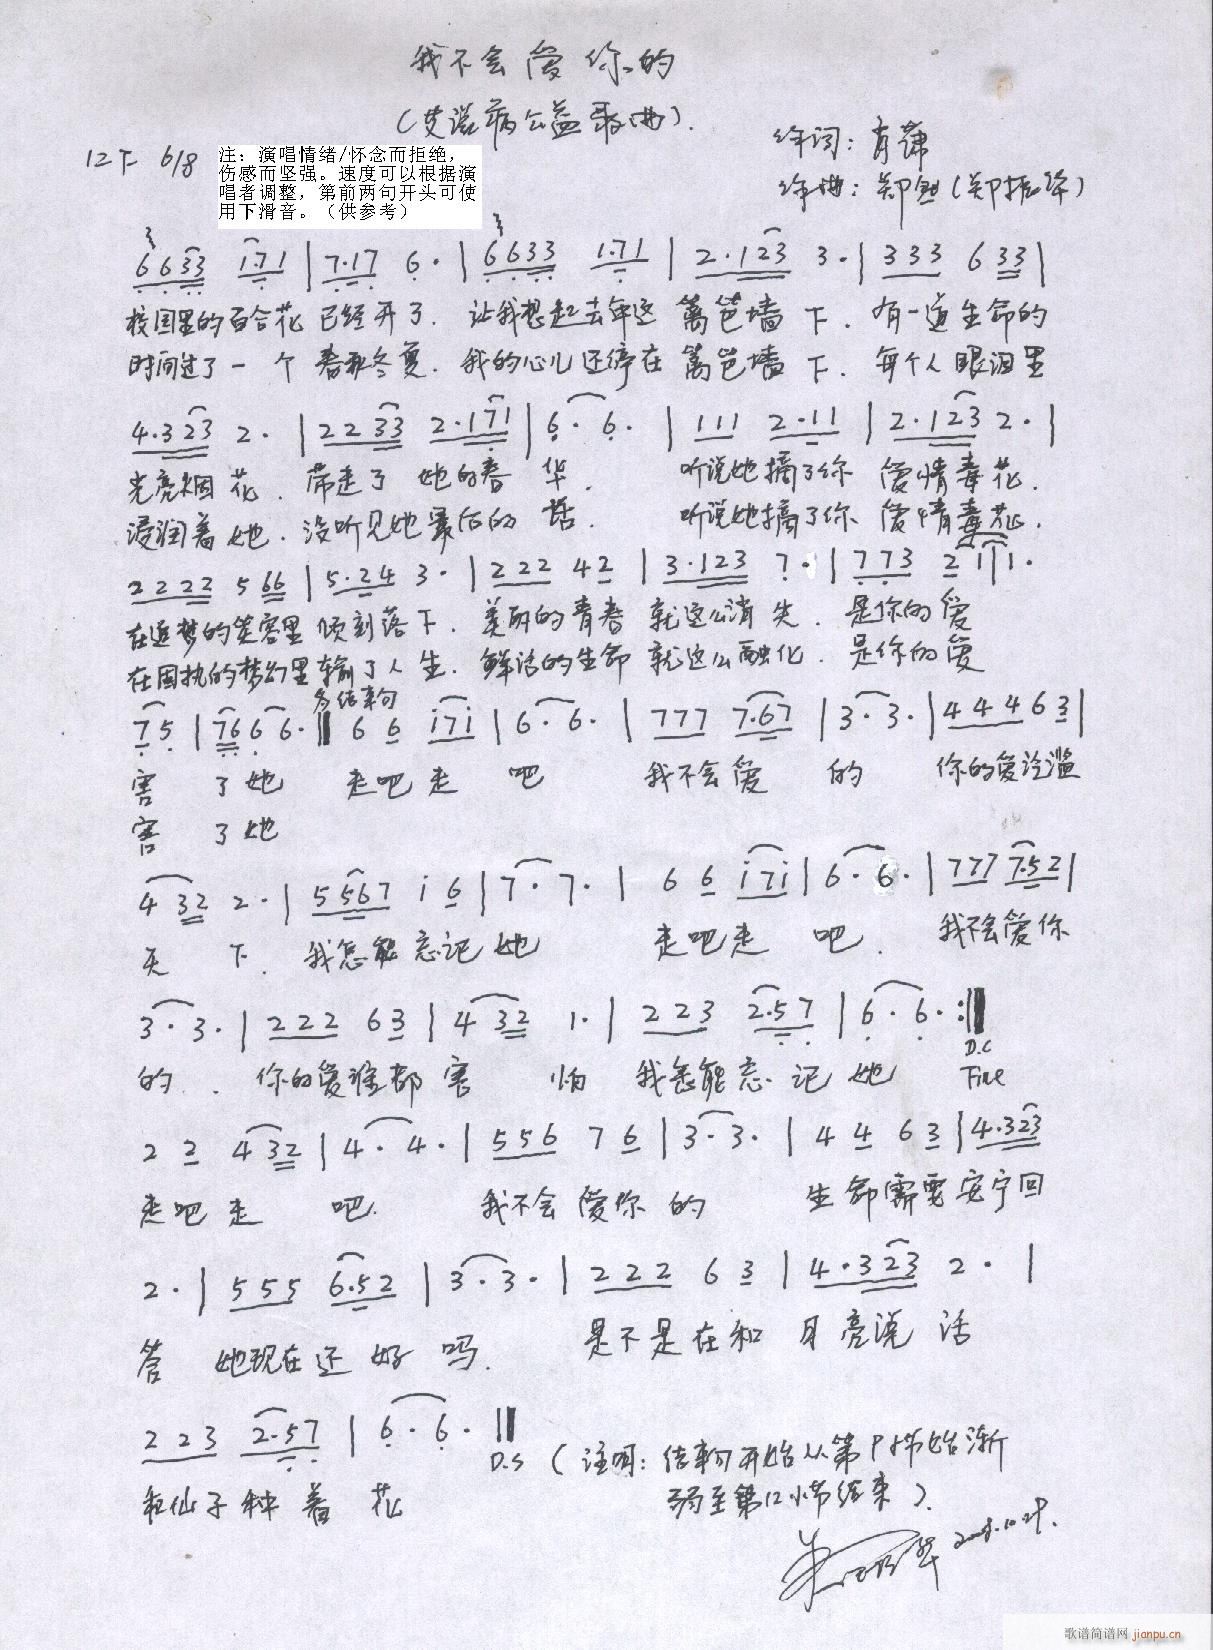 我不会爱你的
(艾滋病公益歌曲).
作词:肖萧
作曲:郑恕(郑振华)
6/8
注:演唱情绪/怀念而拒绝,
伤感而坚强。速度可以根据演
唱者调整,第前两句开头可使
用下滑音。(供参考)
6 6 3 3 1·7 1 | 7·1 7 6 · | 6 6 3 3 1·7 1 | 2·1 2 3 3 · | 3 3 3 6 3 3 |
校园里的百合花 已经开了. 让我想起去年这 篱笆墙 下. 有一道生命的
时间过了一个 春秋冬夏. 我的心儿还停在 篱笆墙 下. 每个人眼泪里
4·3 2 3 2 · | 2 2 3 3 2·1 7 1 | 6 · 6 · | 1 1 1 2·1 1 | 2·1 2 3 2 · |
光亮烟 花. 带走了 她的春 华. 听说她摘了你 爱情毒花.
浸润着她. 没听见她最后的 话. 听说她摘了你 爱情毒花.
2 2 2 2 5 6 6 | 5·2 4 3 · | 2 2 2 4 2 | 3·1 2 3 7 · | 7 7 3 2 1 | 1 ·
在追梦的笑容里 倾刻落下. 美丽的青春 就这么消 失. 是你的爱
在固执的梦幻里输了人生. 鲜活的生命 就这么融化. 是你的爱
7 5 | 7 6 6 6 · ‖ 6 6 i 7 i | 6 · 6 · | 7 7 7 7·6 7 | 3 · 3 · | 4 4 4 6 3 |
害 了她 走吧走 吧 我不会爱 的 你的爱泛滥
害 了她
4 3 2 2 · | 5 5 6 7 i 6 | 7 · 7 · | 6 6 i 7 i | 6 · 6 · | 7 7 7 7·5 2 |
天 下. 我怎能忘记她 走吧走 吧. 我不会爱你
3 · 3 · | 2 2 2 6 3 | 4 3 2 1 · | 2 2 3 2·5 7 | 6 · 6 · :‖
D.C
的. 你的爱谁都害 怕 我怎能忘记她 Fine
2 2 4 3 2 | 4 · 4 · | 5 5 6 7 6 | 3 · 3 · | 4 4 6 3 | 4·3 2 3
走吧走 吧. 我不会爱你的 生命需要安宁回
2 · | 5 5 5 6·5 2 | 3 · 3 · | 2 2 2 6 3 | 4·3 2 3 2 · |
答 她现在还好吗. 是不是在和 月亮说 话
2 2 3 2·5 7 | 6 · 6 · ‖ D.S
和仙子种着 花
(注明:结束句开始从第9小节始渐
弱至第12小节结束).
歌谱简谱网 jianpu.cn